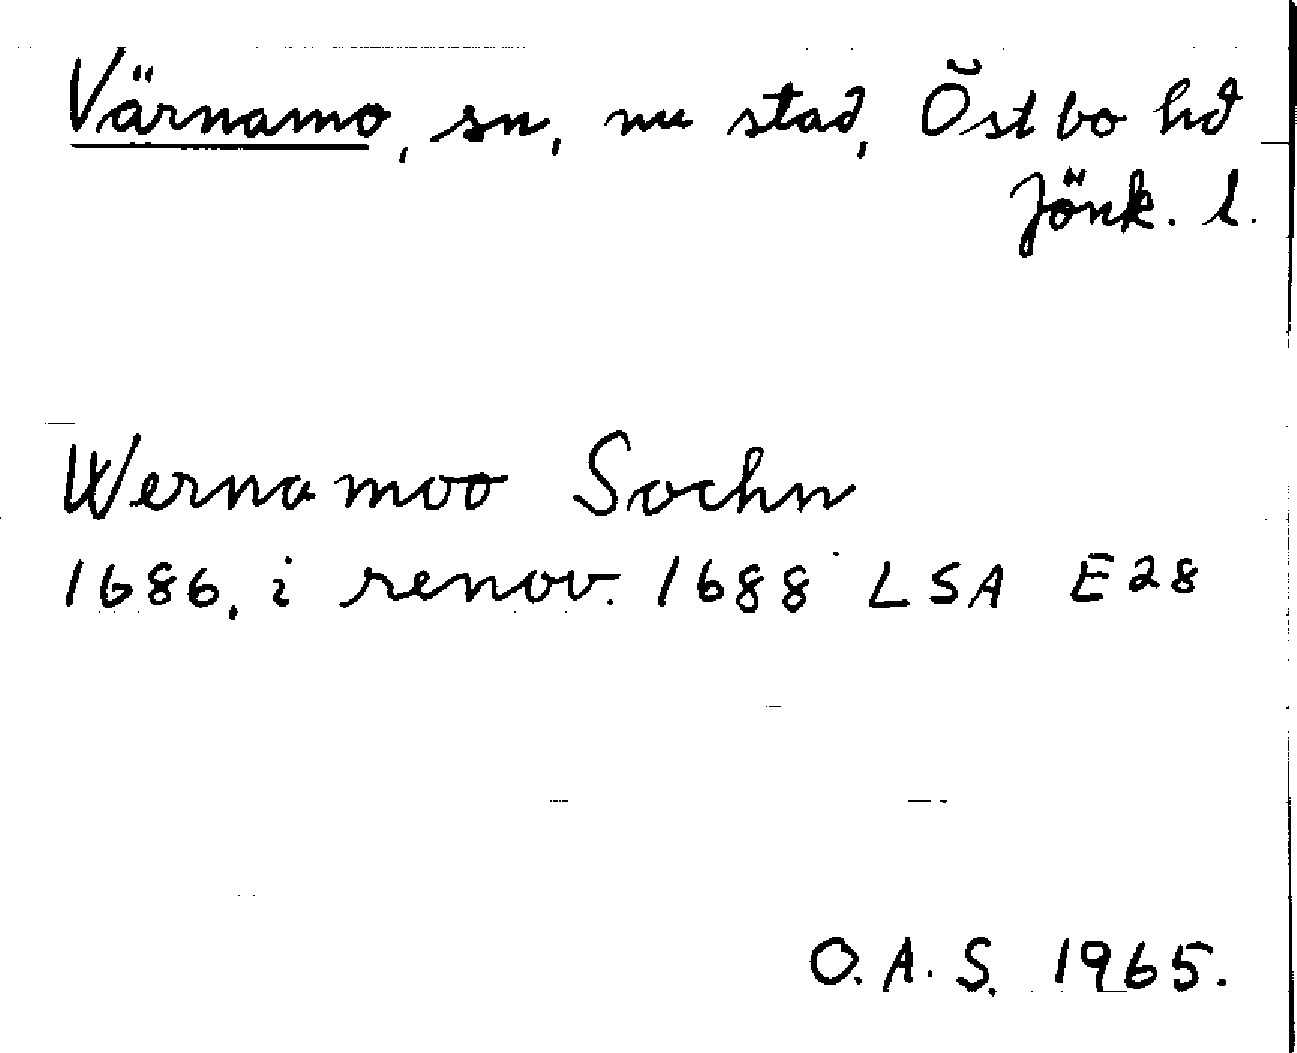 Värnamo, sn, nu stad, Östbo hd
Jönk. l.
Wernamoo Sochn
1686, i renov. 1688 LSA E28
O.A.S. 1965.